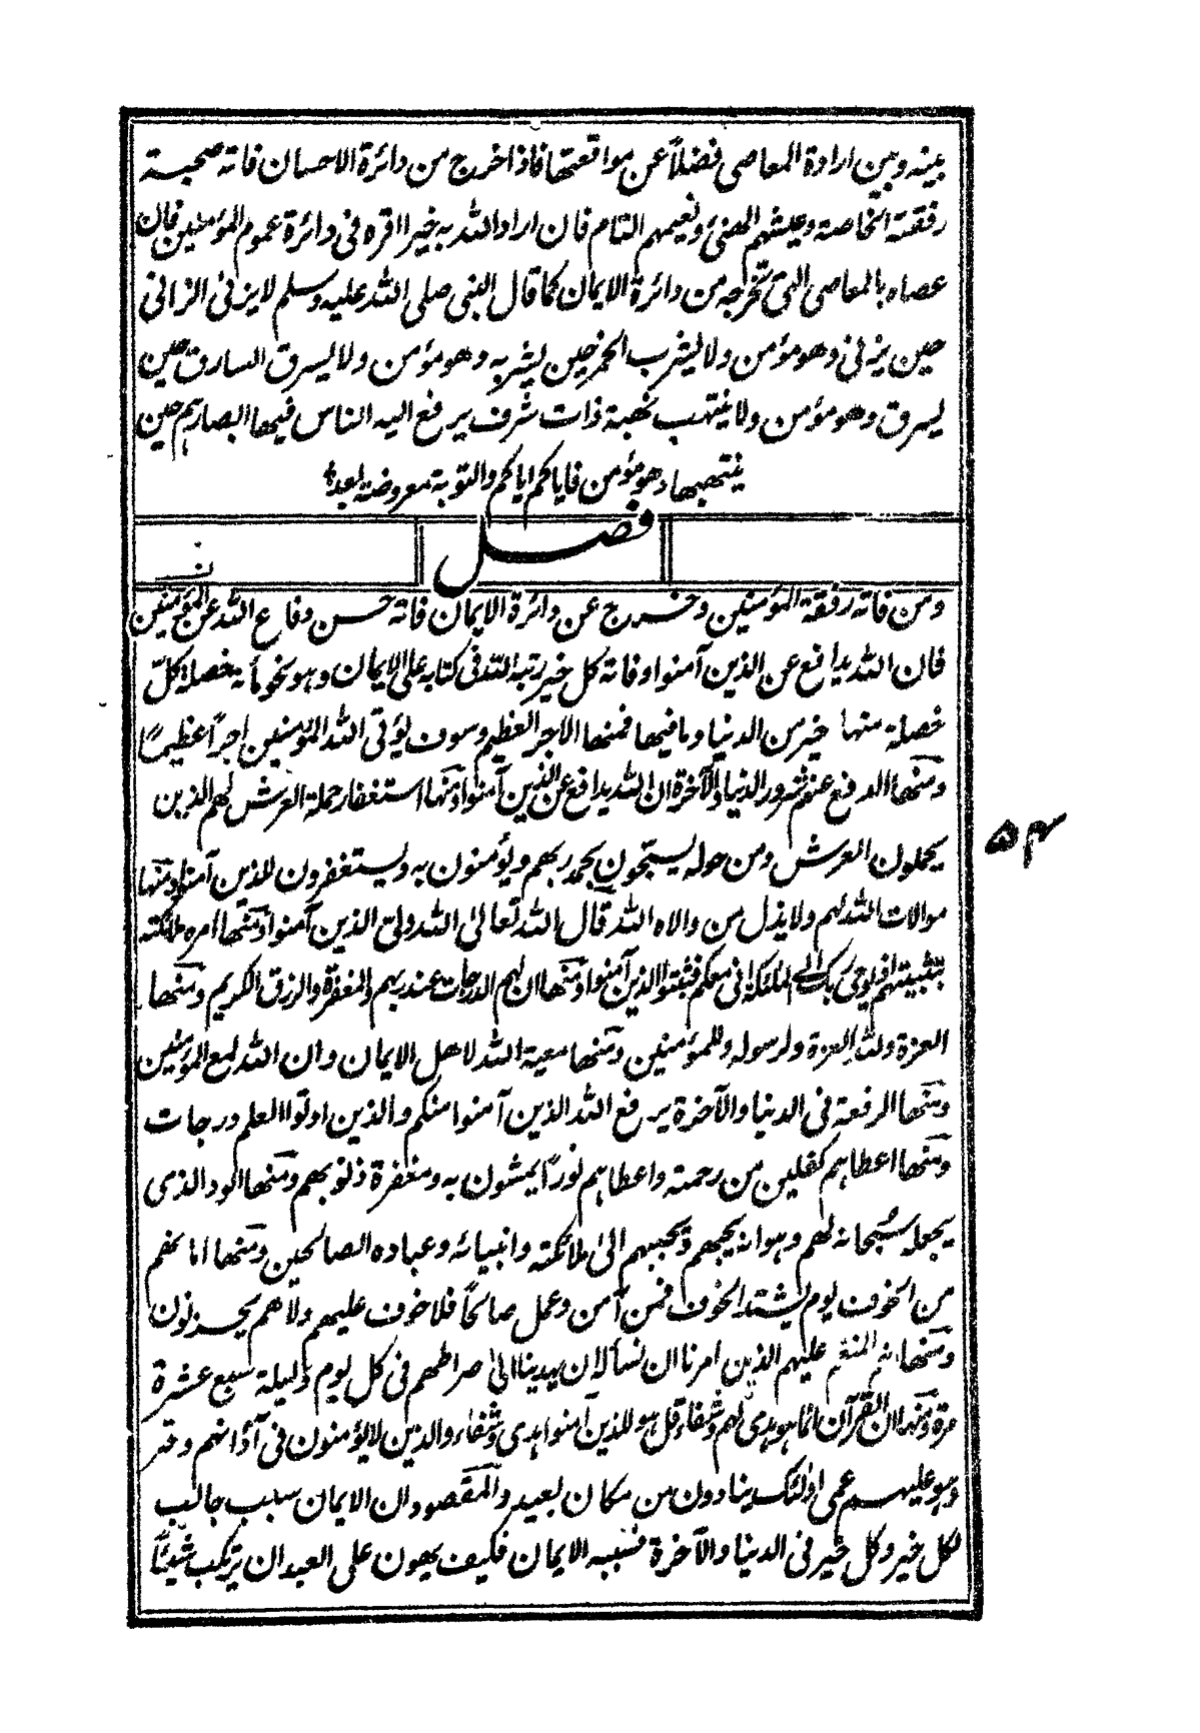 بينه وبين ارادة المعاصى فضلاً عن مواقعتها فاذا خرج من دائرة الاحسان فاته صحبة
رفقته الخاصة وعيشهم الهنئ ونعيمهم التام فان اراد الله به خيرا اقره فى دائرة عموم المؤمنين فان
عصاه بالمعاصى التى تخرجه من دائرة الايمان كما قال النبى صلى الله عليه وسلم لا يزنى الزانى
حين يزنى وهو مؤمن ولا يشرب الخمر حين يشربه وهو مؤمن ولا يسرق السارق حين
يسرق وهو مؤمن ولا ينتهب نهبة ذات شرف يرفع اليه الناس فيها ابصارهم حين
ينتهبها وهو مؤمن فاياكم اياكم والتوبة معروضة بعد
فصل
ومن فاته رفقة المؤمنين وخرج عن دائرة الايمان فاته حسن دفاع الله عن المؤمنين
فان الله يدافع عن الذين آمنوا وفاته كل خير رتبه الله فى كتابه على الايمان وهو نحو مأية خصلة كلّ
خصلة منها خير من الدنيا وما فيها فمنها الاجر العظيم وسوف يؤتى الله المؤمنين اجراً عظيماً
ومنها الدفع عنهم شرور الدنيا والآخرة ان الله يدافع عن الذين آمنوا ومنها استغفار حملة العرش لهم الذين
يحملون العرش ومن حوله يسبحون بحمد ربهم ويؤمنون به ويستغفرون للذين آمنوا ومنها
موالات الله لهم ولا يذل من والاه الله قال الله تعالىٰ الله ولى الذين آمنوا ومنها امره ملائكته
بتثبيتهم اذ يوحى ربك الى الملئكة انى معكم فثبتوا الذين آمنوا ومنها ان لهم الدرجات عند ربهم والمغفرة والرزق الكريم ومنها
العزة ولله العزة ولرسوله وللمؤمنين ومنها معية الله لاهل الايمان وان الله لمع المؤمنين
ومنها الرفعة فى الدنيا والآخرة يرفع الله الذين آمنوا منكم والذين اوتوا العلم درجات
ومنها اعطاهم كفلين من رحمته واعطاهم نوراً يمشون به ومغفرة ذنوبهم ومنها الود الذى
يجعله سبحانه لهم وهو انه يحبهم ويحببهم الىٰ ملائكته وانبيائه وعباده الصالحين ومنها امانهم
من الخوف يوم يشتد الخوف فمن آمن وعمل صالحاً فلا خوف عليهم ولا هم يحزنون
ومنها انهم المنعم عليهم الذين امرنا ان نسأله ان يهدينا الىٰ صراطهم فى كل يوم وليلة سبع عشرة
مرة ومنها ان القرآن انما هو هدى لهم وشفاء قل هو للذين آمنوا هدى وشفاء والذين لا يؤمنون فى آذانهم وقر
وهو عليهم عمى اولئك ينادون من مكان بعيد والمقصود ان الايمان سبب جالب
لكل خير وكل خير فى الدنيا والآخرة فسببه الايمان فكيف يهون على العبد ان يرتكب شيئاً
۵۴